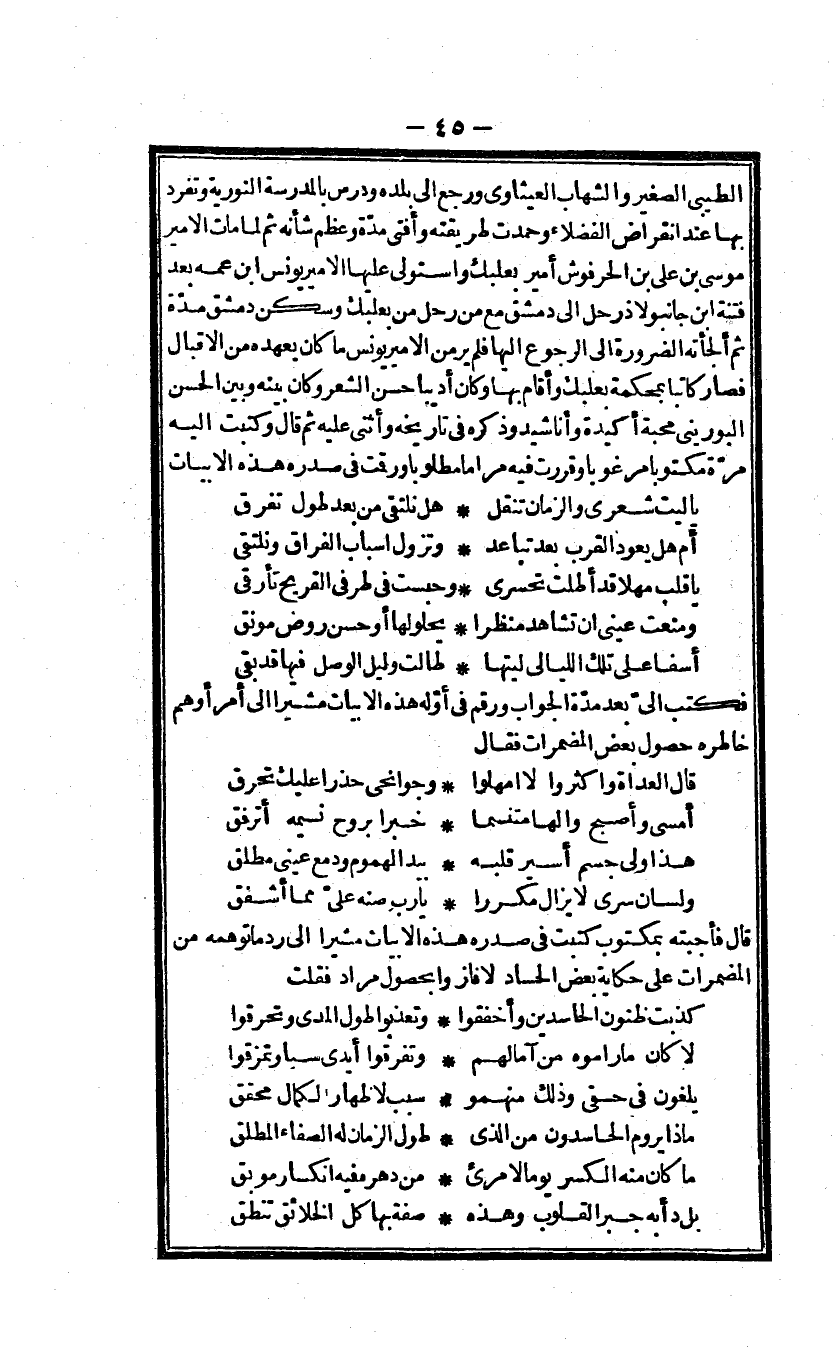 — ٤٥ —
الطيبى الصغير والشهاب العيثاوى ورجع الى بلده ودرس بالمدرسة النورية وتفرد
بها عند انقراض الفضلاء وحمدت طريقته وأفتى مدّة وعظم شأنه ثم لما مات الامير
موسى بن على بن الحرفوش أمير بعلبك واستولى عليها الامير يونس ابن عمه بعد
فتنة ابن جانبولاذ رحل الى دمشق مع من رحل من بعلبك وسكن دمشق مدّة
ثم ألجأته الضرورة الى الرجوع اليها فلم ير من الامير يونس ما كان يعهده من الاقبال
فصار كاتبا بمحكمة بعلبك وأقام بها وكان أديبا حسن الشعر وكان بينه وبين الحسن
البورينى محبة أكيدة وأناشيد وذكره فى تاريخه وأثنى عليه ثم قال وكتبت اليه
مرّة مكتوبا مرغوبا وقررت فيه مراما مطلوبا ورقت فى صدره هذه الابيات
ياليت شعرى والزمان تنقل * هل نلتقى من بعد طول تفرق
أم هل يعود القرب بعد تباعد * وتزول اسباب الفراق ونلتقى
ياقلب مهلا قد أطلت تحسرى * وحبست فى طرفى القريح تأرقى
ومنعت عينى ان تشاهد منظرا * يحلو لها أو حسن روض مونق
أسفا على تلك الليالى ليتها * طالت وليل الوصل فيها قد بقى
فكتب الىّ بعد مدّة الجواب ورقم فى أوّله هذه الابيات مشيرا الى أمر أوهم
خاطره حصول بعض المضمرات فقال
قال العداة واكثروا لا امهلوا * وجوانحى حذرا عليك تحرق
أمسى وأصبح والها متنسما * خبرا بروح نسيمه أترفق
هذا ولى جسم أسير قلبه * بيد الهموم ودمع عينى مطلق
ولسان سرى لا يزال مكررا * يارب صنه علىّ مما أشفق
قال فأجبته بمكتوب كتبت فى صدره هذه الابيات مشيرا الى رد ماتوهمه من
المضمرات على حكاية بعض الحساد لا فازوا بحصول مراد فقلت
كذبت ظنون الحاسدين وأخفقوا * وتعذبوا طول المدى وتحرقوا
لا كان ماراموه من آمالهم * وتفرقوا أيدى سبا وتمزقوا
يلغون فى حقى وذلك منهمو * سبب لاظهار الكمال محقق
ماذا يروم الحاسدون من الذى * طول الزمان له الصفاء المطلق
ما كان منه الكسر يوما لامرئ * من دهره فيه انكسار موبق
بل دأبه جبر القلوب وهذه * صفة بها كل الخلائق تنطق